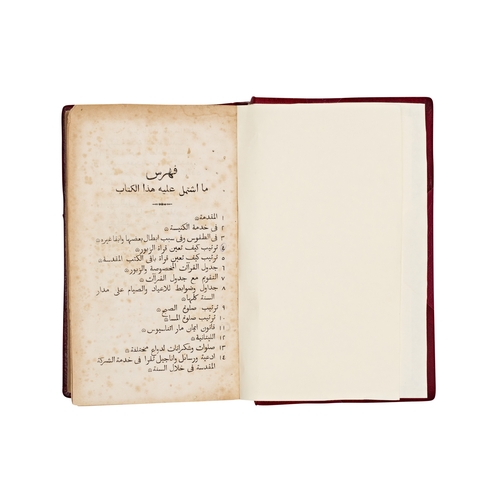 فهرس
ما اشتمل عليه هذا الكتاب
١ المقدمة
٢ فى خدمة الكنيسة
٣ فى الطقوس وفى سبب ابطال بعضها وابقا غيره
٤ ترتيب كيف تعين قراة الزبور
٥ ترتيب كيف تعين قراة باقى الكتب المقدسة
٦ جدول القراآت المخصوصة والزبور
٧ التقويم مع جدول القراآت
٨ جداول وضوابط للاعياد والصيام على مدار
السنة كلها
٩ ترتيب صلوة الصبح
١٠ ترتيب صلوة المسا
١١ قانون ايمان مار اثناسيوس
١٢ الليتانية
١٣ صلوات وتشكرات لدواع مختلفة
١٤ ادعية ورسائل واناجيل تقرا فى خدمة الشركة
المقدسة فى خلال السنة